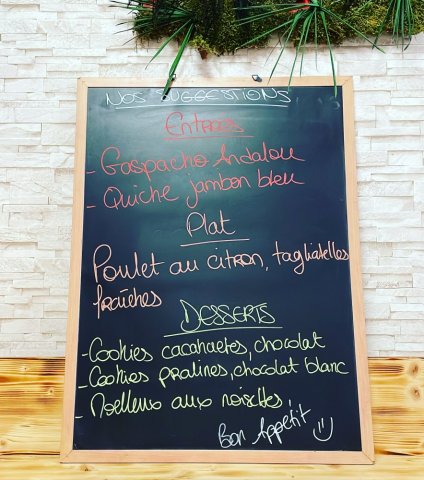 NOS SUGGESTIONS
Entrées
- Gaspacho Andalou
- Quiche jambon bleu
Plat
Poulet au citron, tagliatelles
fraîches
DESSERTS
- Cookies cacahuetes, chocolat
- Cookies pralines, chocolat blanc
- Moelleux aux noisettes
Bon Appetit :)